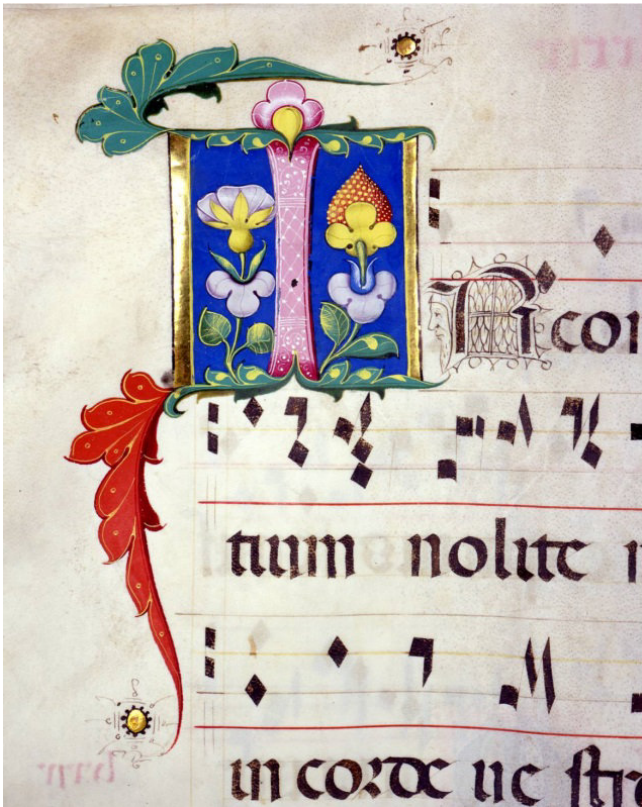 IN con
tium nolite
in corde ue stro